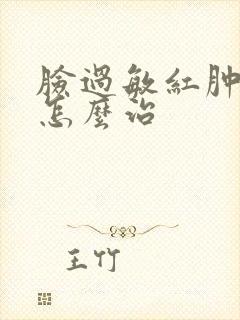 臉過敏紅肿
怎麼治
王竹